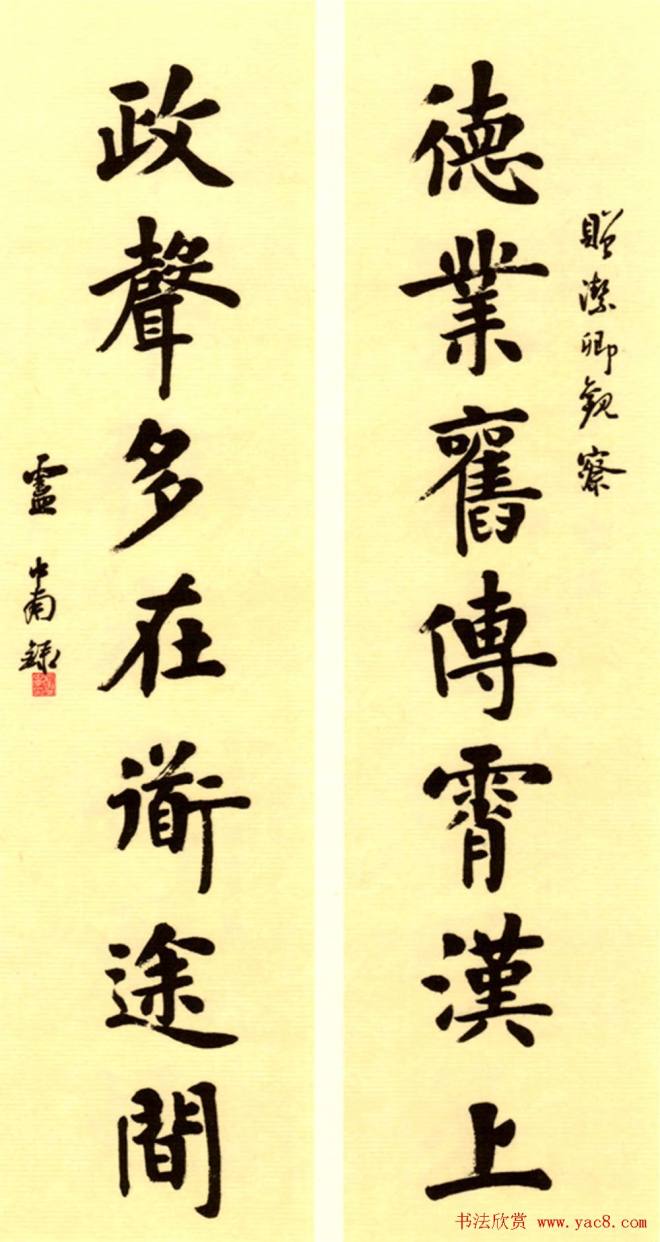 贈潔卿觀察
德業舊傳霄漢上
政聲多在衜途間
盧中南錄
书法欣赏 www.yac8.com